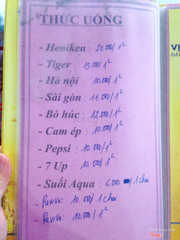 THỨC UỐNG
- Heniken : 20.000/1L
- Tiger : 15.000/1L
- Hà nội : 10.000/1L
- Sài gòn : 11.000/1L
- Bò húc : 12.000/1L
- Cam ép : 10.000/1L
- Pepsi : 10.000/1L
- 7 Up : 10.000/1L
- Suối Aqua : 6.000/1 chai
- Revive: 10.000/1 chai
- Revive: 10.000/1L